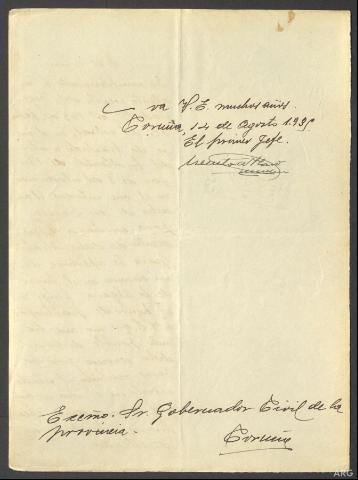 va V. E. muchos años.
Coruña, 14 de Agosto 193
El primer Jefe.
Excmo. Sr. Gobernador Civil de la
provincia. Coruña
ARG